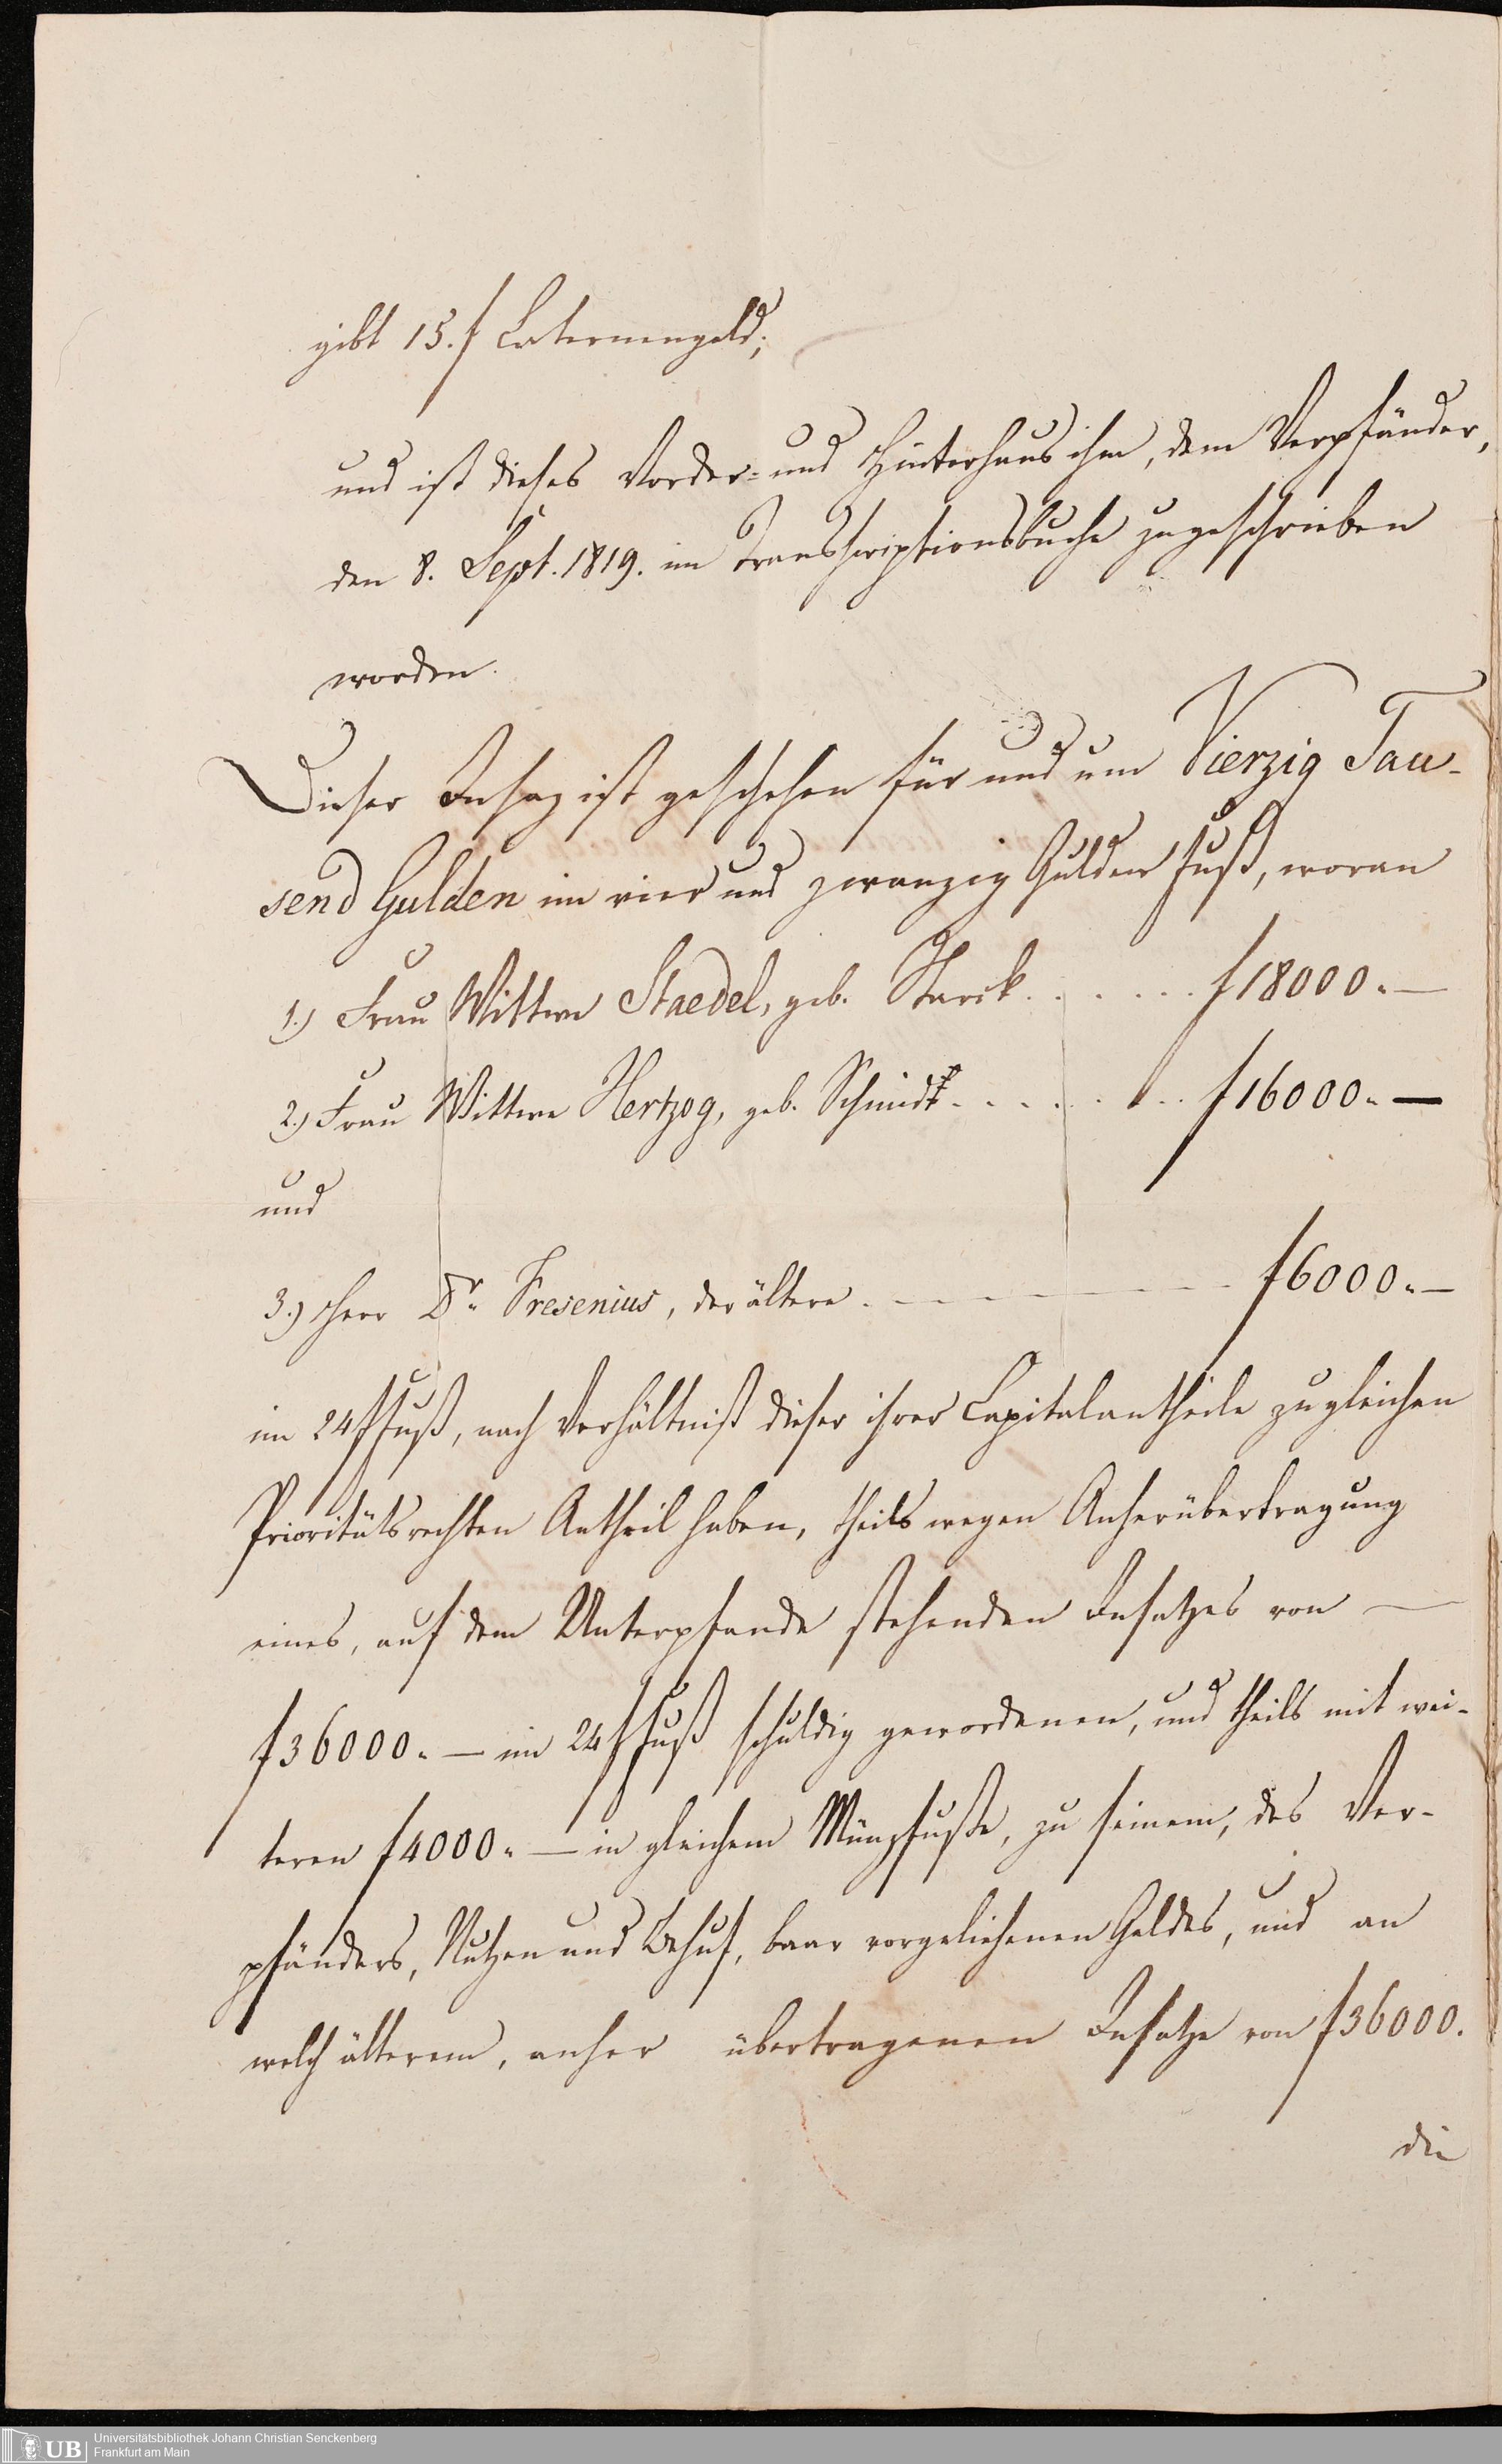 gibt 15. f Laternengeld;
und ist dieses Vorder= und Hinterhaus ihm, dem Verpfänder,
den 8. Sept. 1819. im Transscriptionsbuche zugeschrieben
worden.
Dieser Insatz ist geschehen für und um Vierzig Tau-
send Gulden im vier und zwanzig Gulden Fuß, woran
1.) Frau Wittwe Staedel, geb. Starck. . . . . . . f 18000. —
2.) Frau Wittwe Hertzog, geb. Schmidt . . . . . . . . f 16000. —
und
3.) Herr Dr. Fresenius, der ältere. — — — — — — — f 6000. —
im 24 f Fuß, nach Verhältniß dieser ihrer Capitalantheile zu gleichen
Prioritätsrechten Antheil haben, theils wegen Anherübertragung
eines, auf dem Unterpfande stehenden Insatzes von —
f 36000. — im 24 f Fuß schuldig gewordenen, und theils mit wei-
teren f 4000. — in gleichem Münzfuße, zu seinem, des Ver-
pfänders, Nutzen und Behuf, baar vorgeliehenen Geldes, und an
welch älterem, anher übertragenen Insatze von f 36000.
die
UB
Universitätsbibliothek Johann Christian Senckenberg
Frankfurt am Main